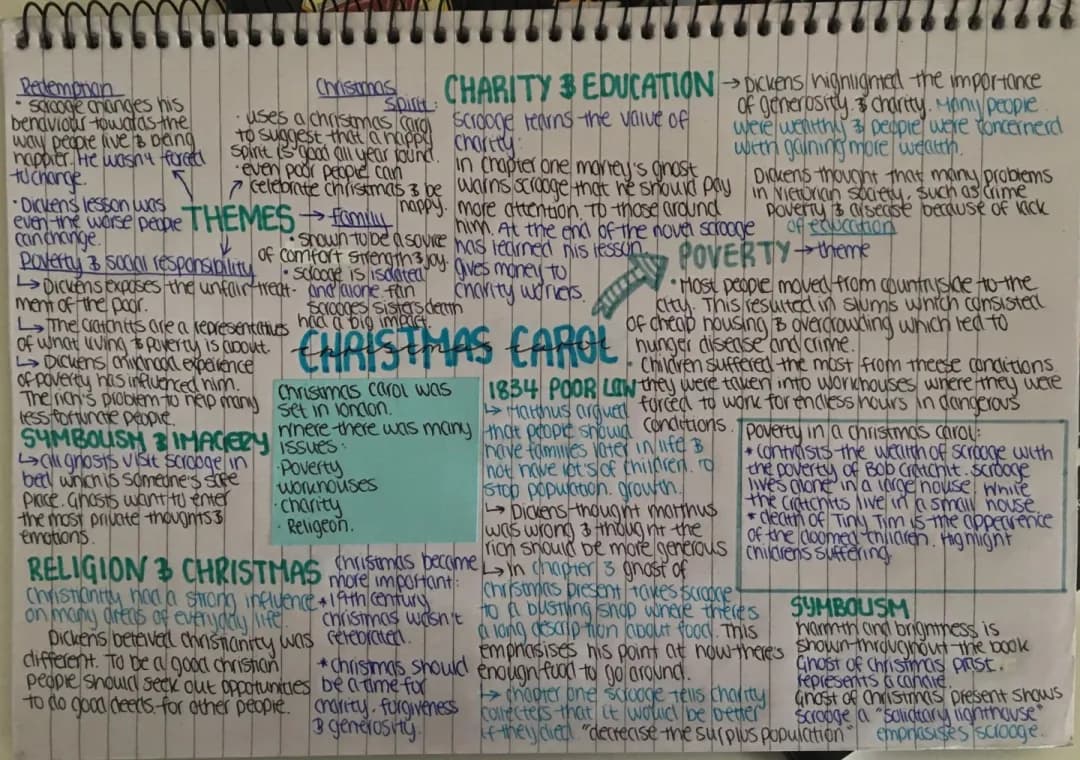 Redemption
• scrooge changes his
behaviour towards the
way people live & being
happier. He wasn't forced
to change.
• Dickens lesson was
even the worse people
can change.
Christmas
Spirit:
• uses a christmas carol
to suggest that a happy
spirit is good all year round.
• even poor people can
celebrate christmas & be
happy.
THEMES → family
• shown to be a source
of comfort strength & joy.
• scrooge is isolated
and alone. fan
scrooges sisters death
had a big impact.
Poverty & social responsibility
↳ Dickens exposes the unfair treat-
ment of the poor.
↳ The cratchits are a representatives
of what living & poverty is about.
↳ Dickens childhood experience
of poverty has influenced him.
The rich's problem to help many
less fortunate people.
CHARITY & EDUCATION
scrooge learns the value of
charity:
in chapter one marley's ghost
warns scrooge that he should pay
more attention. To those around
him. At the end of the novel scrooge
has learned his lesson
gives money to
charity workers.
→ Dickens highlighted the importance
of generosity & charity. Many people
were wealthy & people were concerned
with gaining more wealth.
Dickens thought that many problems
in victorian society, such as crime
poverty & disease because of lack
of education
POVERTY → theme
• Most people moved from countryside to the
city. This resulted in slums which consisted
of cheap housing & overcrowding which led to
hunger disease and crime.
• Children suffered the most from theese conditions
they were taken into workhouses where they were
forced to work for endless hours in dangerous
conditions.
CHRISTMAS CAROL
christmas carol
Christmas carol was
set in london.
Where there was many
issues:
• Poverty
workhouses
• charity
• Religeon.
1834 POOR LAW
↳ Malthus argued
that people should
have families later in life &
not have lot's of children. To
stop population. growth.
↳ Dickens thought malthus
was wrong & thought the
rich should be more generous
↳ in chapter 3 ghost of
christmas present takes scrooge
to a bustling shop where theres
a long description about food. This
emphasises his point at how there's
enough food to go around.
↳ chapter one scrooge tells charity
that it would be better
if they died "decrease the surplus population"
Poverty in a christmas carol:
* contrasts the wealth of scrooge with
the poverty of Bob cratchit. scrooge
lives alone in a large house. While
the cratchits live in a small house
* death of Tiny Tim is the
of the doomed children. Highlight
childrens suffering.
SYMBOLISM & IMAGERY
↳ all ghosts visit scrooge in
bed which is someone's safe
place. Ghosts want to enter
the most private thoughts &
emotions.
RELIGION & CHRISTMAS
christianity had a strong influence
on many areas of everyday life.
Dickens beleved christianity was
different. To be a good christian
people should seek out oppotunities
to do good deeds for other people.
christmas became
more important:
* 19th century
christmas wasn't
celebrated.
* christmas should
be a time for
charity. forgiveness
& generosity.
SYMBOLISM
warmth and brightness is
shown throughout the book
Ghost of christmas past.
represents a candle.
Ghost of christmas present shows
scrooge a lighthouse"
emphasises scrooge.